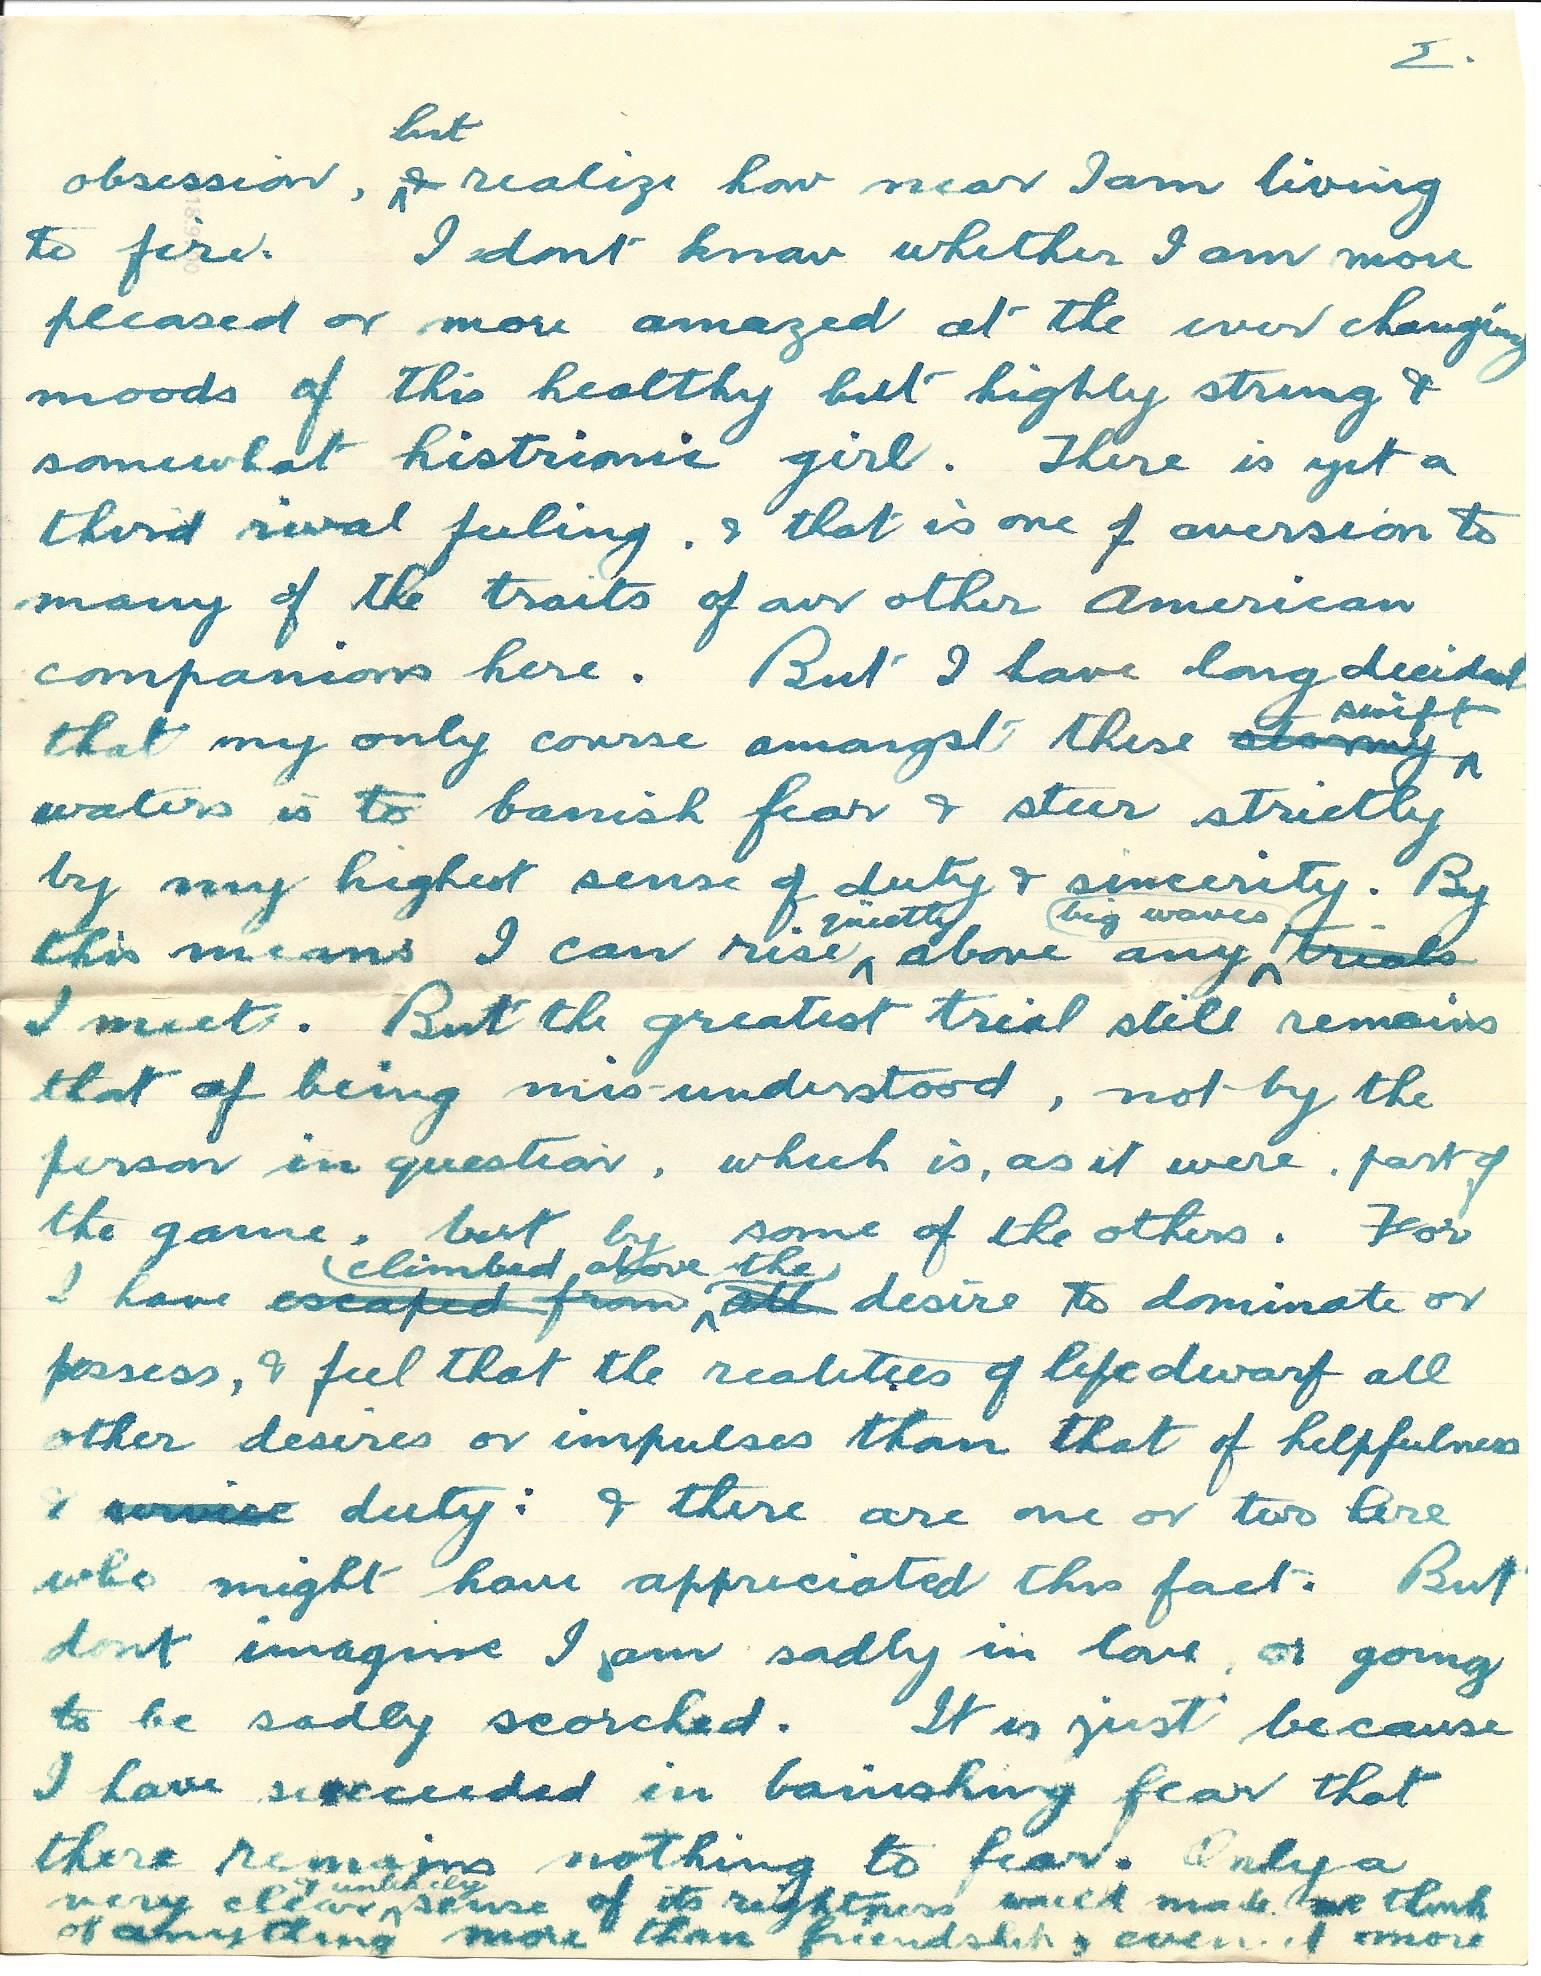 2.
but
obsession, & realize how near I am living
to fire. I dont know whether I am more
pleased or more amazed at the ever changing
moods of this healthy but highly strung &
somewhat histrionic girl. There is yet a
third rival feeling, & that is one of aversion to
many of the traits of our other American
companions here. But I have long decided
swift
that my only course amongst these stormy
waters is to banish fear & steer strictly
by my highest sense of duty & sincerity. By
quietly big waves
this means I can rise above any trials
I meet. But the greatest trial still remains
that of being mis-understood, not by the
person in question, which is, as it were, part of
the game, but by some of the others. For
climbed above the
I have escaped from all desire to dominate or
possess, & feel that the realities of life dwarf all
other desires or impulses than that of helpfulness
& service duty: & there are one or two here
who might have appreciated this fact. But
dont imagine I am sadly in love, or going
to be sadly scorched. It is just because
I have succeeded in banishing fear that
there remains nothing to fear. Only a
& unlikely
very clear sense of its rightness would make me think
of anything more than friendship, even if more